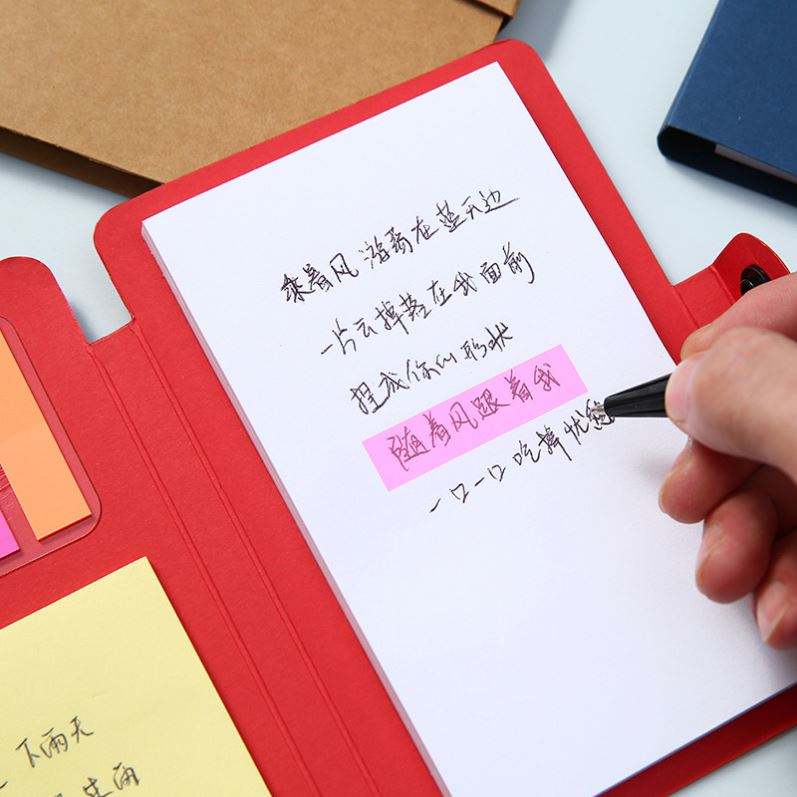 乘着风 游荡在蓝天边
一片云掉落在我面前
捏成你的形状
随着风跟着我
一口一口吃掉忧愁
下雨天